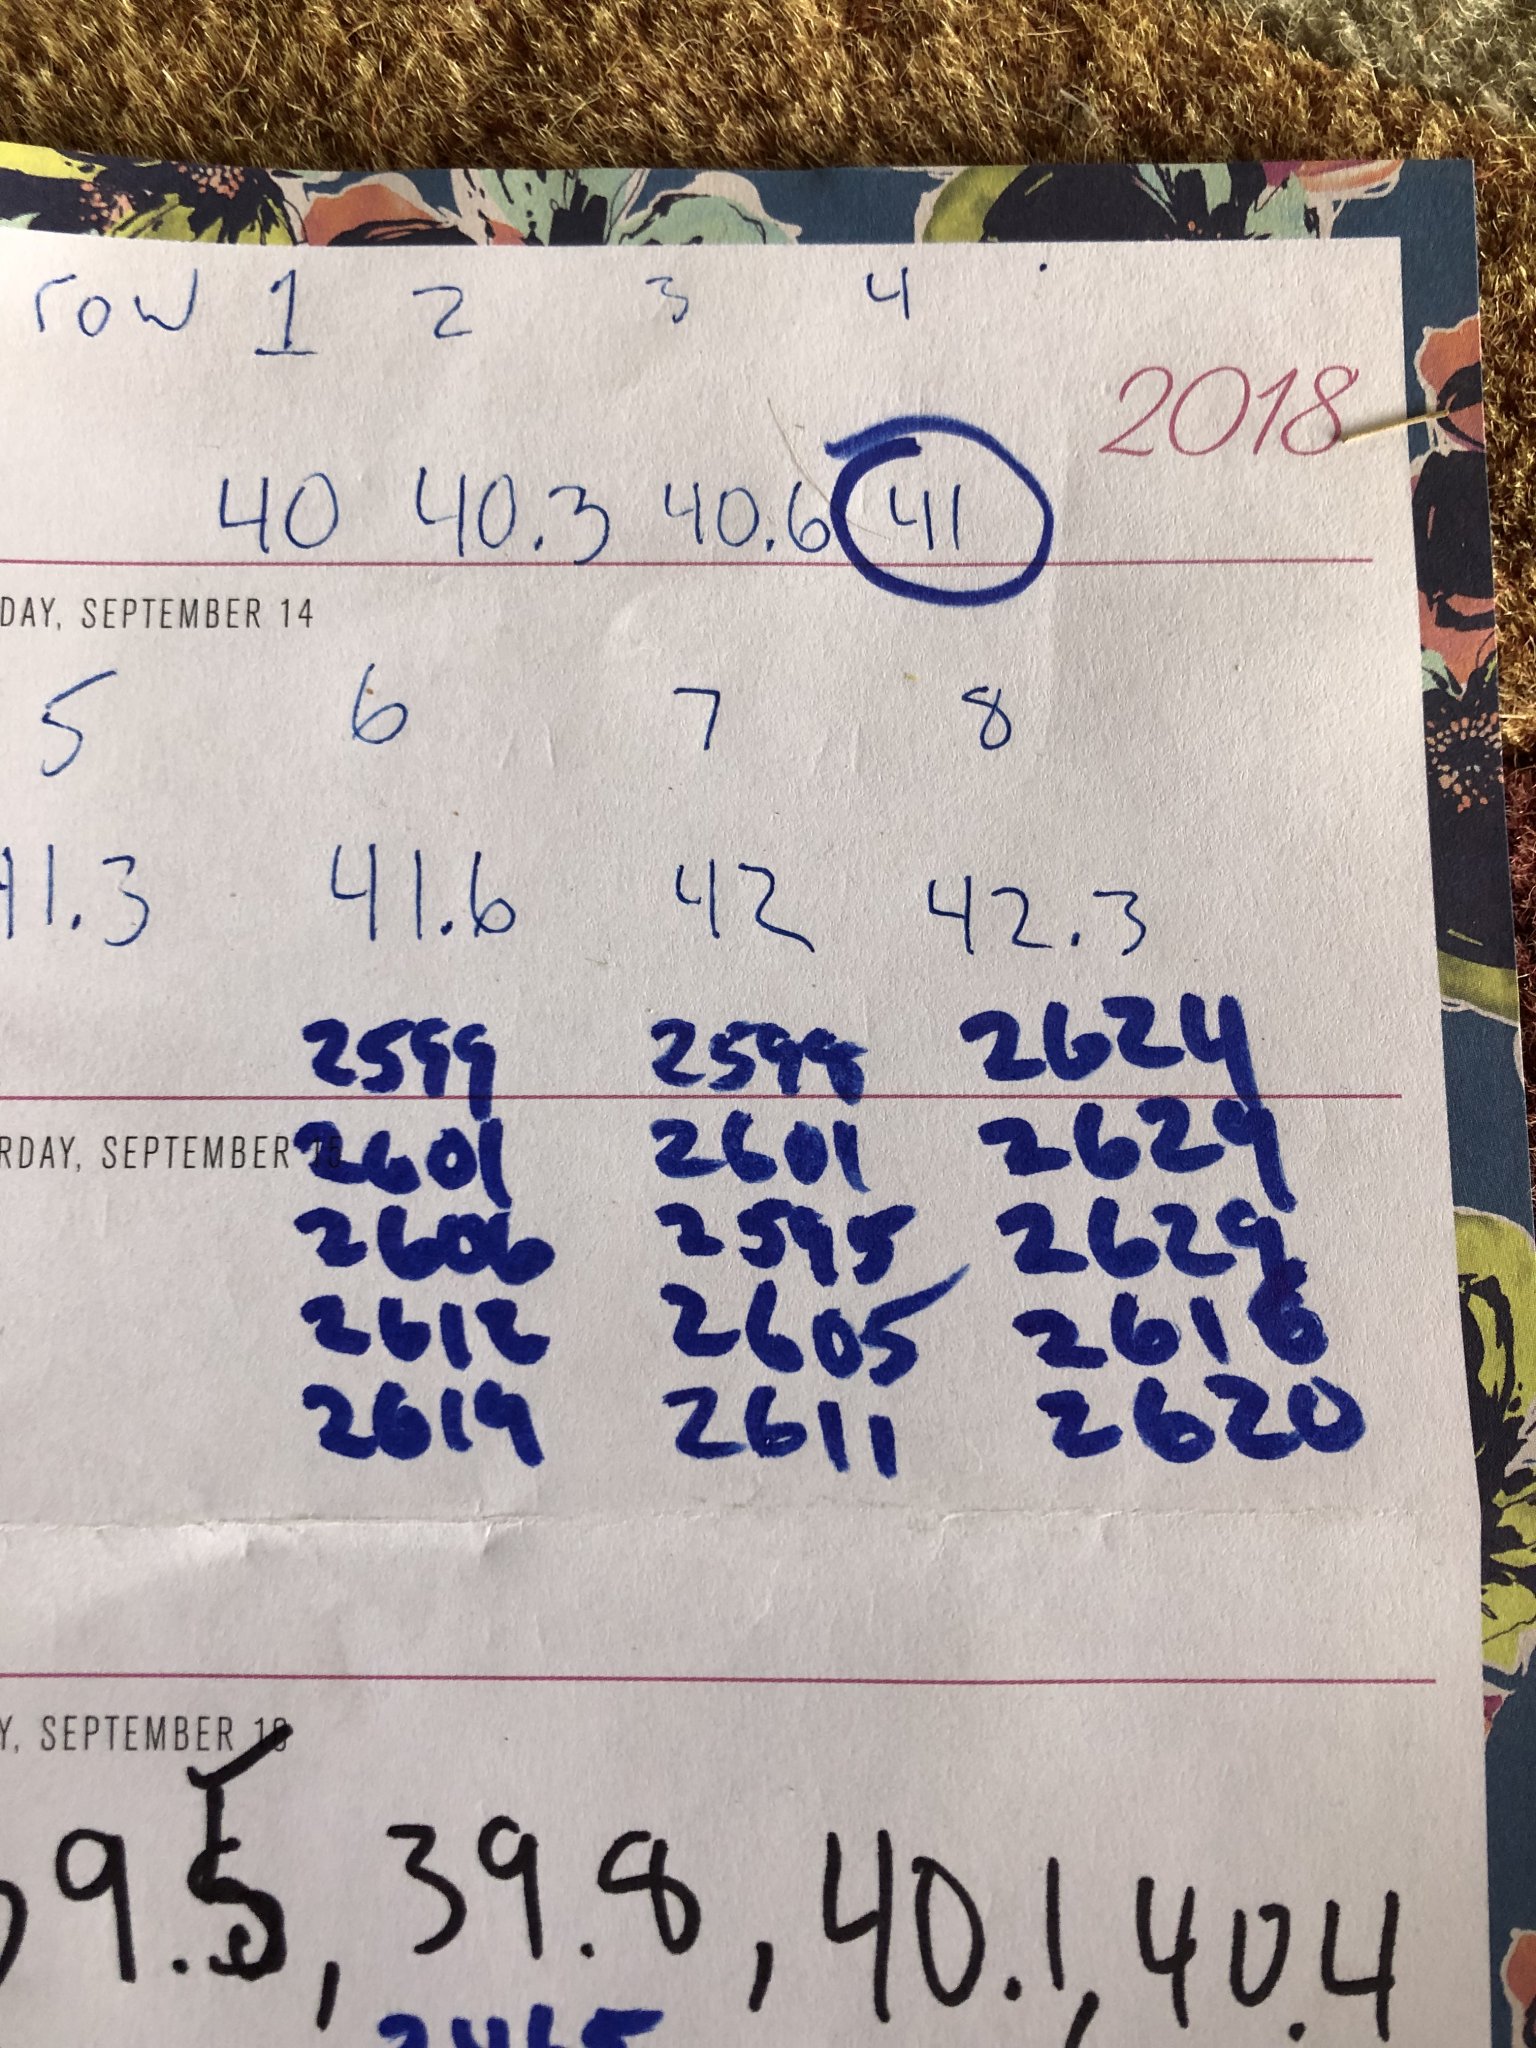 row 1 2 3 4
2018
40 40.3 40.6 41
DAY, SEPTEMBER 14
5 6 7 8
41.3 41.6 42 42.3
2599 2598 2624
2601 2601 2629
RDAY, SEPTEMBER 15
2606 2595 2629
2612 2605 2616
2619 2611 2620
Y, SEPTEMBER 16
9.5, 39.8, 40.1, 40.4
2465